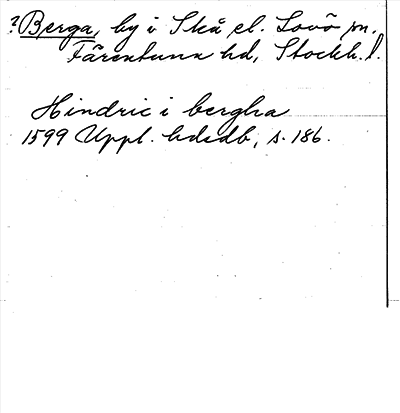 ? Berga, by i Skå el. Lovö sn,
Färentuna hd, Stockh. l.
Hindric i bergha
1599 Uppl. hdsdb, s. 186.